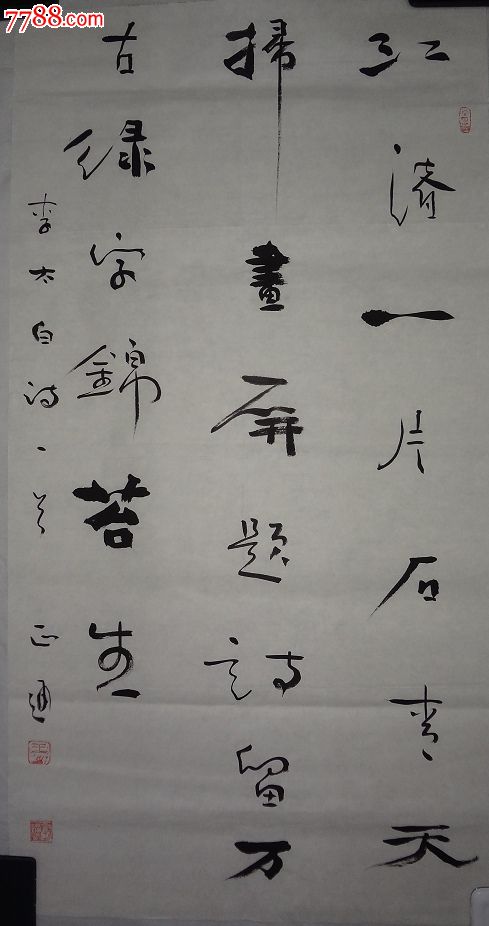 7788.com
江渚一片石青天
掃畫屏題詩留万
古绿字錦苔生
李太白诗一首 正通